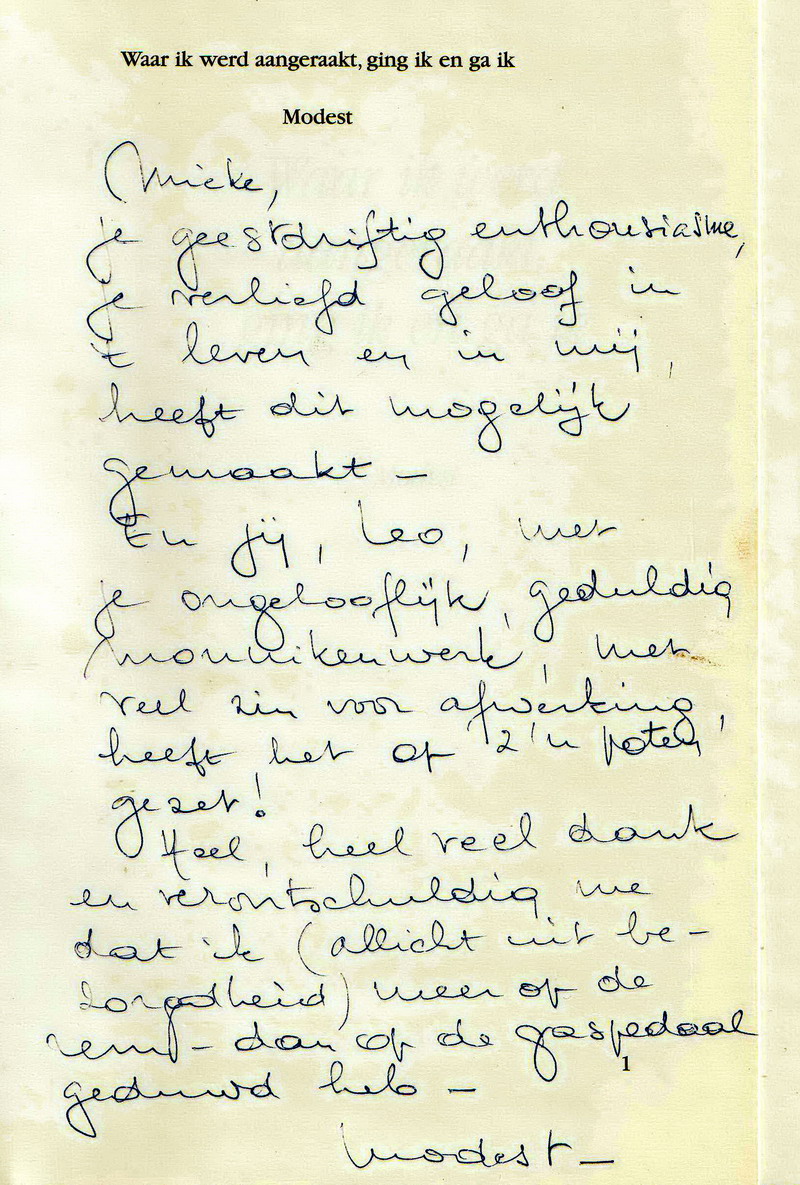 Waar ik werd aangeraakt, ging ik en ga ik
Modest
Mieke,
je geestdriftig enthousiasme,
je verliefd geloof in
't leven en in mij,
heeft dit mogelijk
gemaakt –
En jij, Leo, met
je ongelooflijk, geduldig
monnikenwerk, met
veel zin voor afwerking,
heeft het op z'n poten
gezet!
Heel, heel veel dank
en verontschuldig me
dat ik (allicht uit be-
zorgdheid) meer op de
rem – dan op de gaspedaal
1
geduwd heb –
Modest –